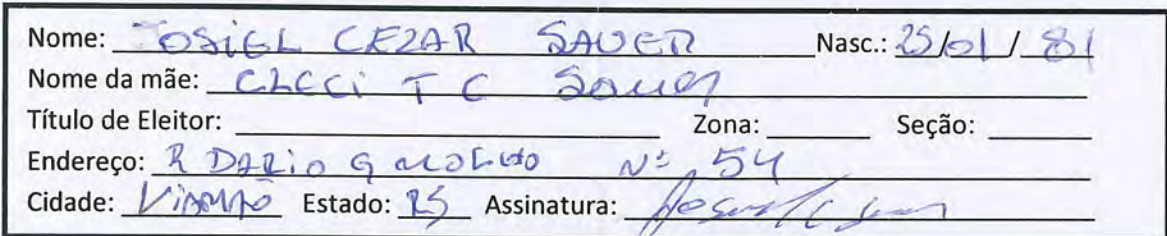 Nome: JOSIEL CEZAR SAUER Nasc.: 25/01/81
Nome da mãe: CLECI T C Sauer
Título de Eleitor: Zona: Seção:
Endereço: R DARIO G Nº 54
Cidade: VIAMÃO Estado: RS Assinatura: